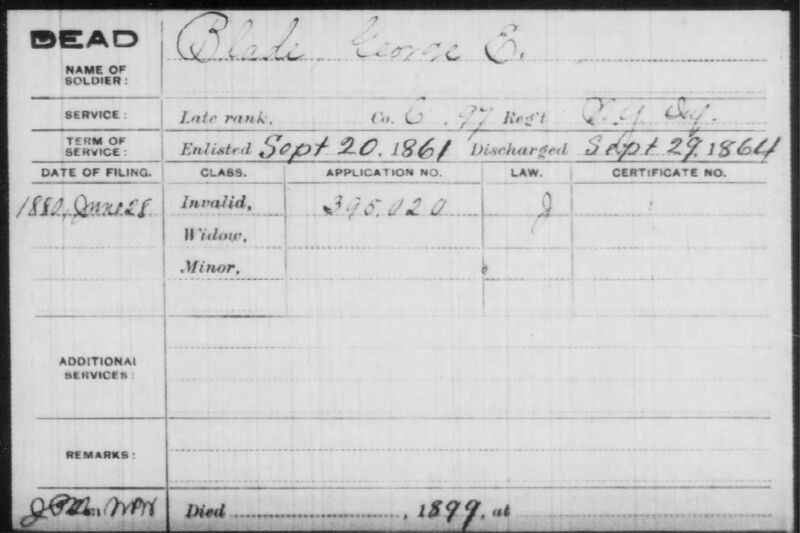 DEAD
NAME OF SOLDIER: Blade, George E.
SERVICE: Late rank, Co. C, 97 Reg't N.Y. Inf.
TERM OF SERVICE: Enlisted Sept 20, 1861 Discharged Sept 29, 1864
DATE OF FILING. CLASS. APPLICATION NO. LAW. CERTIFICATE NO.
1880, June 28 Invalid, 395.020 J
Widow,
Minor,
ADDITIONAL SERVICES:
REMARKS:
Died , 1899, at